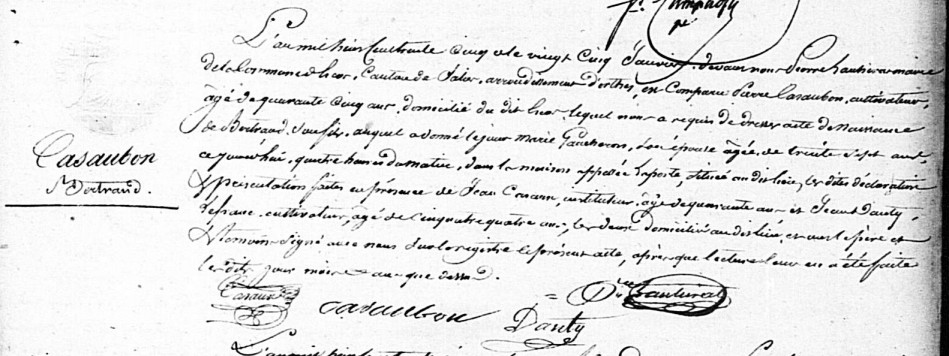 P. Campagn
pr
L'an mil huit cent trente cinq et le vingt cinq Janvier, devant nous Pierre hauticirat maire
de la Commune d'her, Canton de Salies, arrondissement d'orthez, en Comparu Pierre Casaubon, cultivateur,
âgé de quarante cinq ans, domicilié du dit lieu lequel nous a requis de dresser acte de Naissance
de Bertrand, Son fils, auquel a donné le jour Marie Son épouse âgée de trente Sept ans,
Casaubon
Bertrand.
ce jourd'hui, quatre heures du matin, dans la maison appelée Laposte, située au dit lieu, les dites déclaration
et présentation faites en présence de Jean instituteur, âgé de quarante ans et Jean Dauty,
cultivateur, âgé de Cinquante quatre ans, les deux domiciliés au dit lieu, et ont le père et
témoins Signé avec nous Sur le registre le présent acte, après que lecture leur en a été faite
les dits jour mois et an que dessus.
Casaubon
Dauty
L'an mil huit